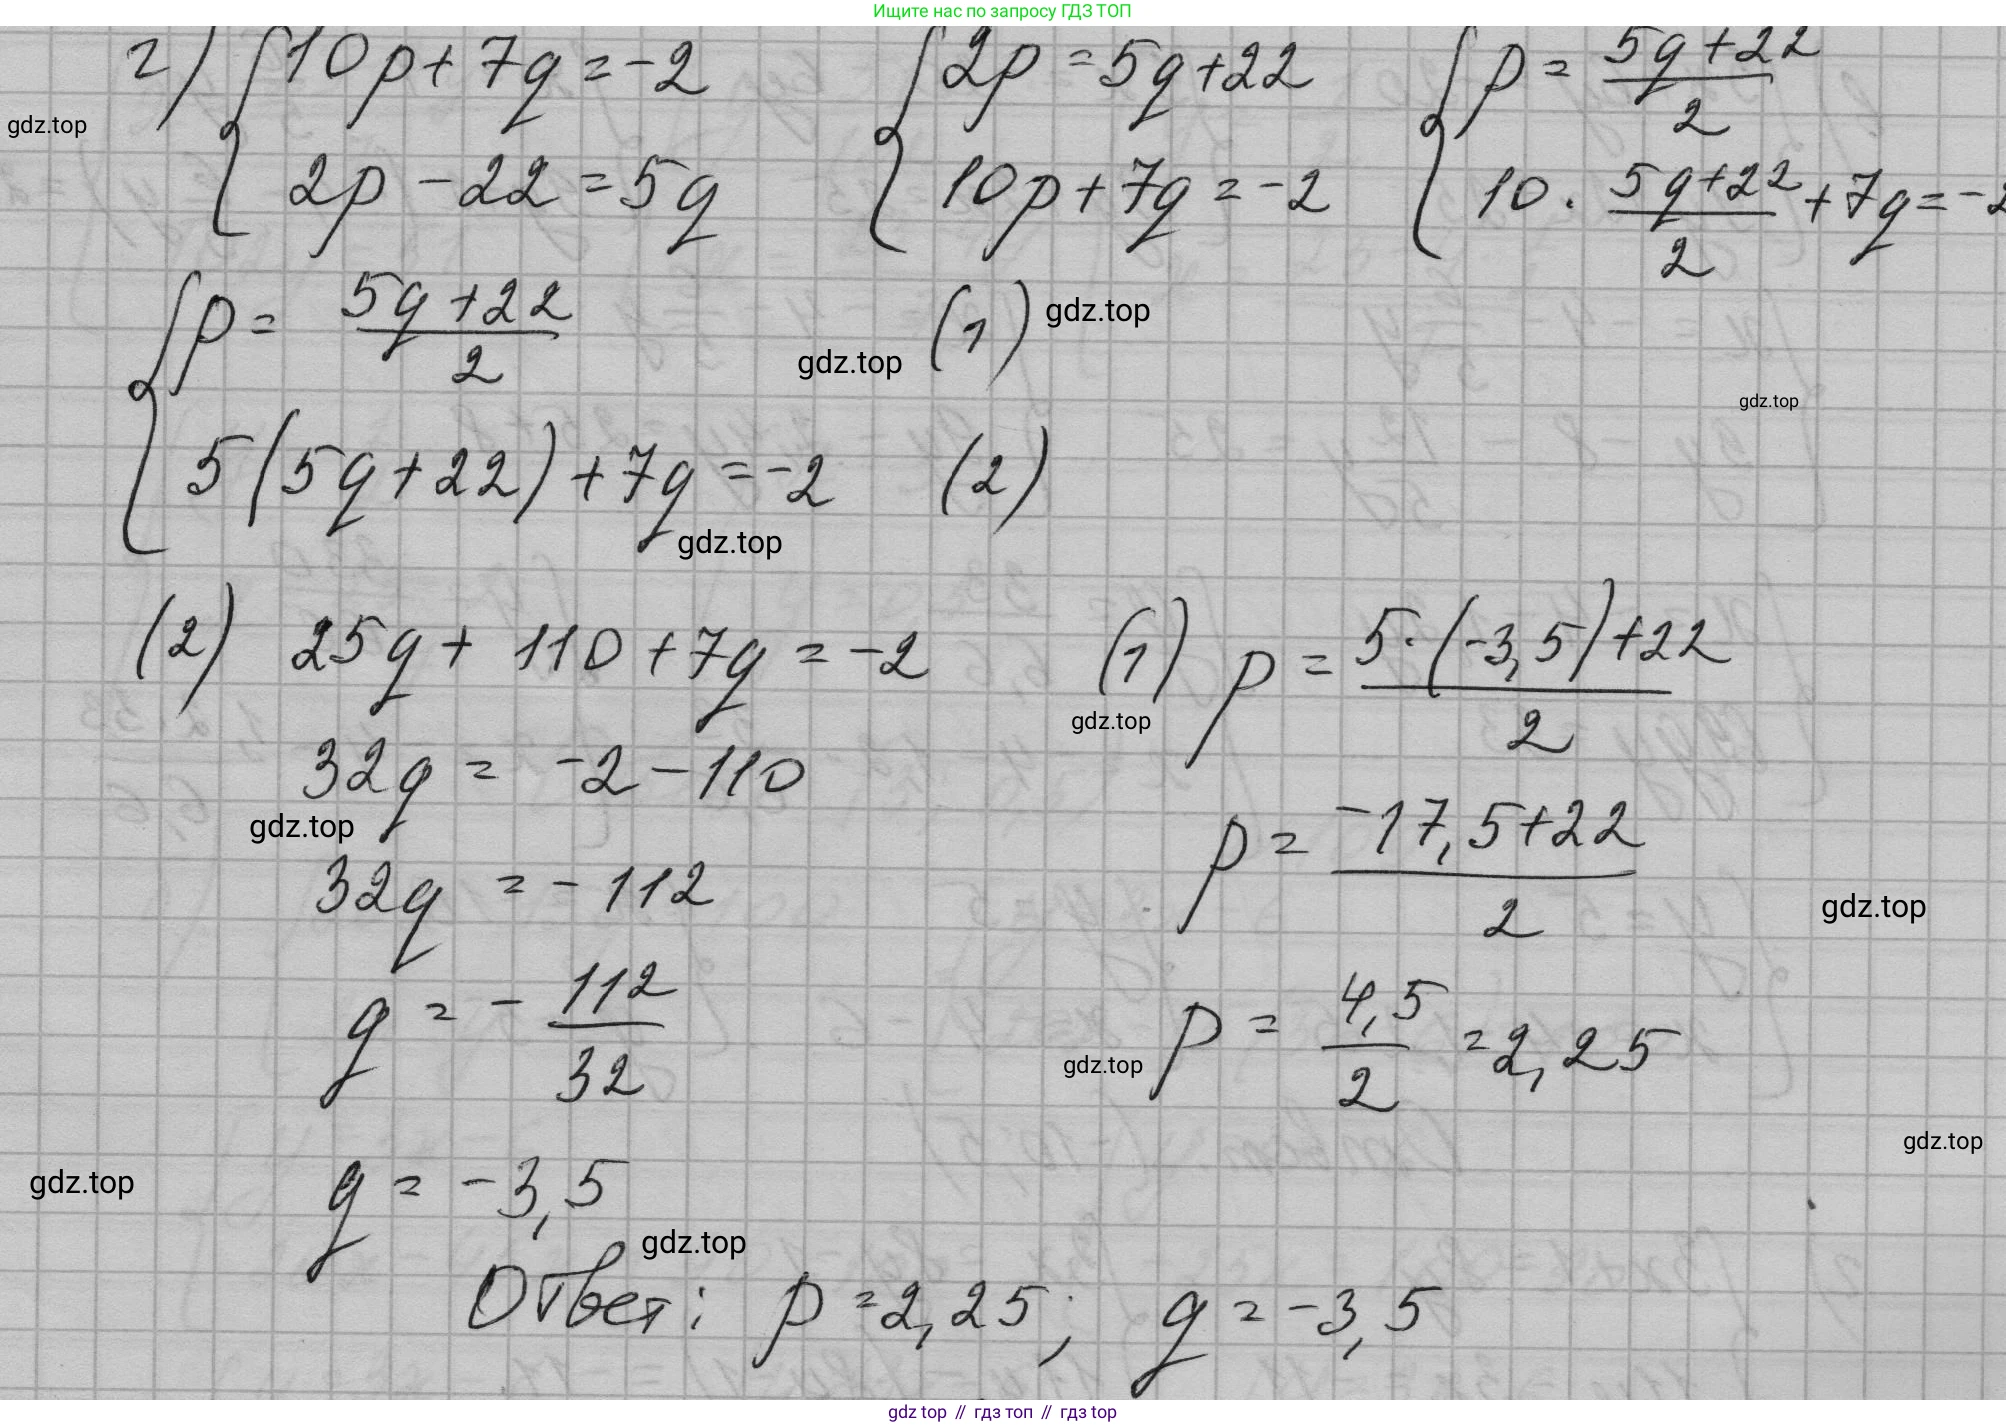 Ищите нас по запросу ГДЗ ТОП
г) { 10p + 7q = -2
2p - 22 = 5q
{ 2p = 5q + 22
10p + 7q = -2
{ p = (5q + 22)/2
10 · (5q + 22)/2 + 7q = -2
gdz.top
{ p = (5q + 22)/2 (1)
5(5q + 22) + 7q = -2 (2)
gdz.top
gdz.top
gdz.top
gdz.top
(2) 25q + 110 + 7q = -2
32q = -2 - 110
32q = -112
q = - 112/32
q = -3,5
gdz.top
gdz.top
(1) p = (5·(-3,5) + 22)/2
p = (-17,5 + 22)/2
p = 4,5/2 = 2,25
gdz.top
gdz.top
gdz.top
gdz.top
gdz.top
Ответ: p = 2,25; q = -3,5
gdz top // гдз топ // гдз top